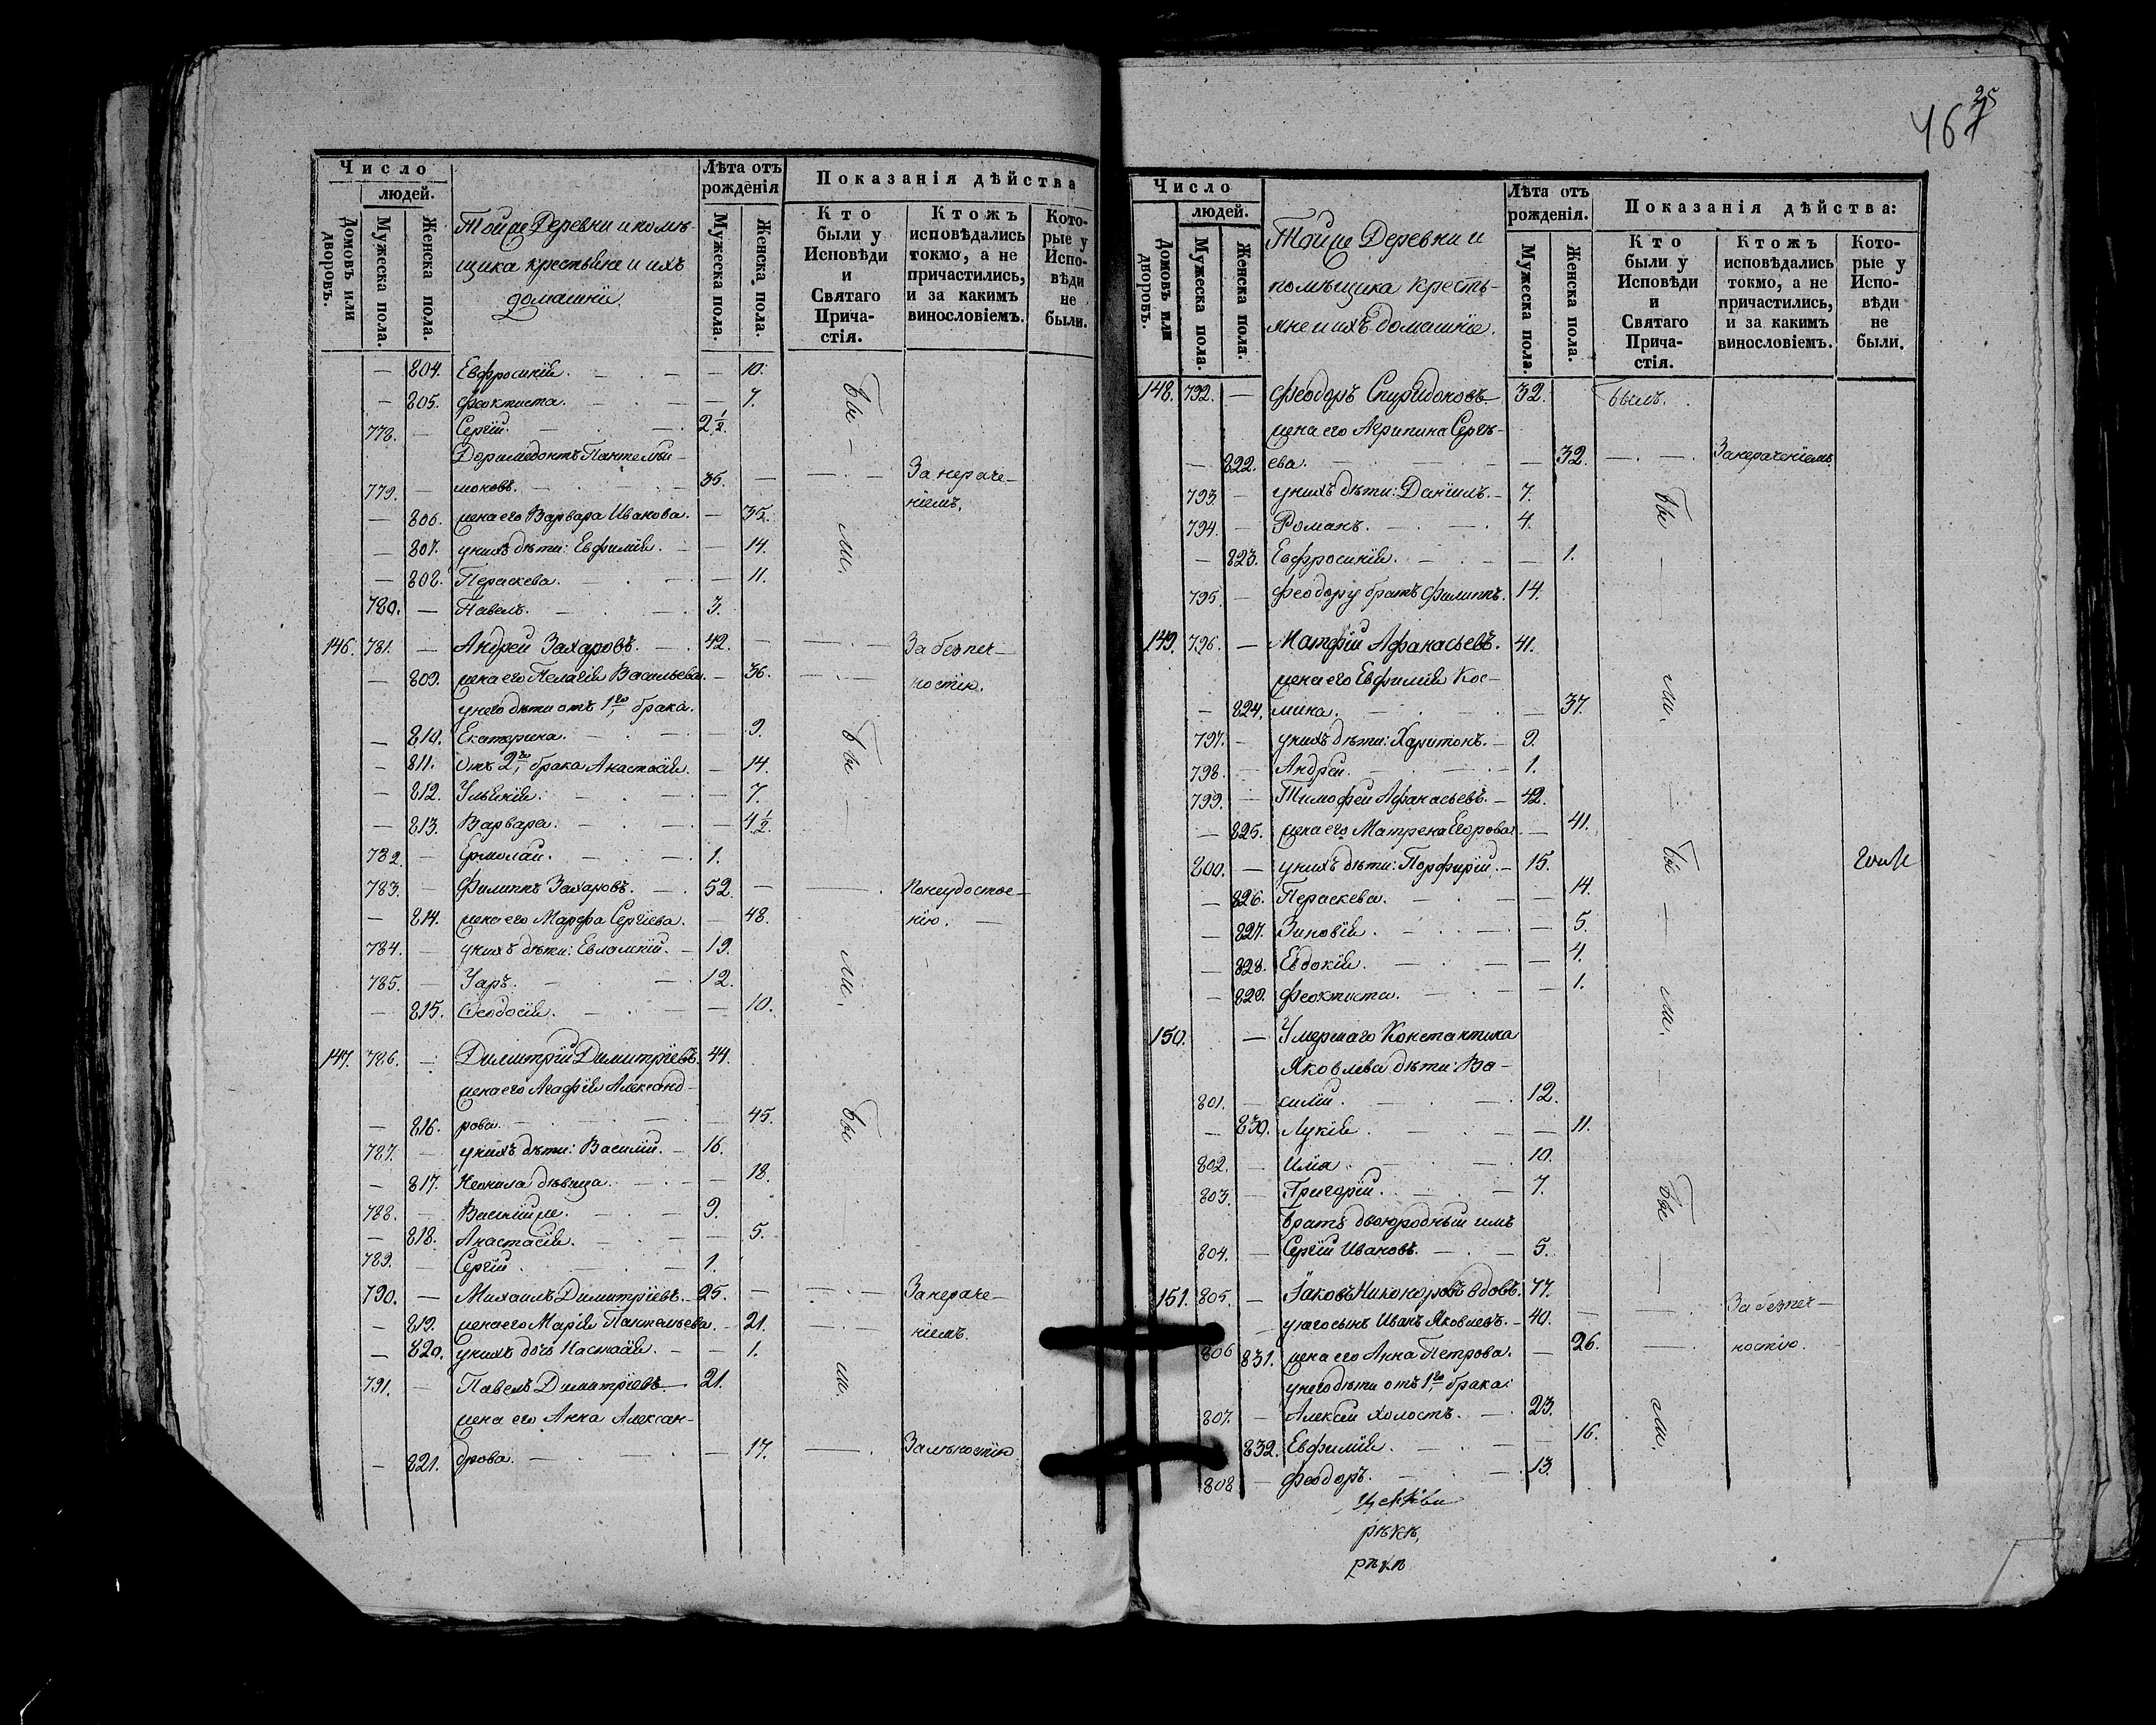 Число
людей.
Домовъ или дворовъ.
Мужеска пола.
Женска пола.
Тойже Деревни и помѣ-
щика крестьяне и ихъ
домашніе
Лѣта отъ
рожденія
Мужеска пола.
Женска пола.
Показанія дѣйства
Кто были у Исповѣди и Святаго Прича-стія.
Ктожъ исповѣдались токмо, а не причастились, и за какимъ винословіемъ.
Кото-рые у Испо-вѣди не были.
— 804. Евфросинія. — 10.
— 805. Феоктиста. — 7.
778. — Сергій. 2 1/2.
Доримедонтъ Пантелѣи-
779. — моновъ. 35. — За нераче-
— 806. жена его Варвара Иванова. — 35. ніемъ.
— 807. у нихъ дѣти: Евфимія. — 14.
— 808. Пераскева. — 11.
780. — Павелъ. 3.
Бы — ли.
146. 781. — Андрей Захаровъ. 42. — За безпеч-
— 809. жена его Пелагія Васильева. — 36. ностію.
у него дѣти отъ 1го брака.
— 810. Екатерина. — 9.
— 811. Отъ 2го брака Анастасія. — 14.
— 812. Ульянія. — 7.
— 813. Варвара. — 4 1/2.
782. — Ермолай. 1.
783. — Филиппъ Захаровъ. 52. — По неудостое-
— 814. жена его Марфа Сергіева. — 48. нію.
784. — у нихъ дѣти: Евлампій. 19.
785. — Уаръ. 12.
— 815. Феодосія. — 10.
Бы — ли.
147. 786. — Димитрій Димитріевъ. 44.
жена его Агафія Александ-
— 816. рова. 45.
787. — у нихъ дѣти: Василій. 16.
— 817. Неонила дѣвица. — 18.
788. — Василій же. 9.
— 818. Анастасія. — 5.
789. — Сергій. 1.
790. — Михаилъ Димитріевъ. 25. — За нераче-
— 819. жена его Марія Пантелѣева. — 21. ніемъ.
— 820. у нихъ дочь Настасія. — 1.
791. — Павелъ Димитріевъ. 21.
жена его Анна Алексан-
— 821. дрова. — 17. За лѣностію
Бы — ли.
467
25
Число
людей.
Домовъ или дворовъ.
Мужеска пола.
Женска пола.
Тойже Деревни и
помѣщика кресть-
яне и ихъ домашніе.
Лѣта отъ
рожденія.
Мужеска пола.
Женска пола.
Показанія дѣйства:
Кто были у Исповѣди и Святаго Прича-стія.
Ктожъ исповѣдались токмо, а не причастились, и за какимъ винословіемъ.
Кото-рые у Испо-вѣди не были.
148. 792. — Феодоръ Спиридоновъ. 32. былъ.
жена его Агрипина Сергѣ-
— 822. ева. — 32. За нераченіемъ
793. — у нихъ дѣти: Даніилъ. 7.
794. — Романъ. 4.
— 823. Евфросинія. — 1.
795. — Феодору братъ Филиппъ. 14.
149. 796. — Матфій Афанасьевъ. 41.
жена его Евфимія Кос-
— 824. мина. — 37.
Бы — ли.
797. — у нихъ дѣти: Харитонъ. 9.
798. — Андрей. 1.
799. — Тимофей Афанасьевъ. 42.
— 825. жена его Матрена Егорова. — 41.
800. — у нихъ дѣти: Порфирій. 15.
— 826. Пераскева. — 14.
— 827. Зиновія. — 5.
— 828. Евдокія. — 4.
— 829. Феоктиста. — 1.
Бы — ли.
150. — Умершаго Константина
Яковлева дѣти: Ва-
801. — силій. 12.
— 830. Лукія. — 11.
802. — Илія. 10.
803. — Григорій. 7.
братъ двоюродный имъ
804. — Сергій Ивановъ. 5.
151. 805. — Іаковъ Никоноровъ вдовъ. 77.
806 — у него сынъ Иванъ Яковлевъ. 40. — За безпеч-
831. жена его Анна Петрова. — 26. ностію.
у него дѣти отъ 1го брака:
807. — Алексій холостъ. 23.
832. Евфимія. — 16.
808 — Феодоръ. 13.
Бы — ли
рѣкѣ,
рѣкѣ